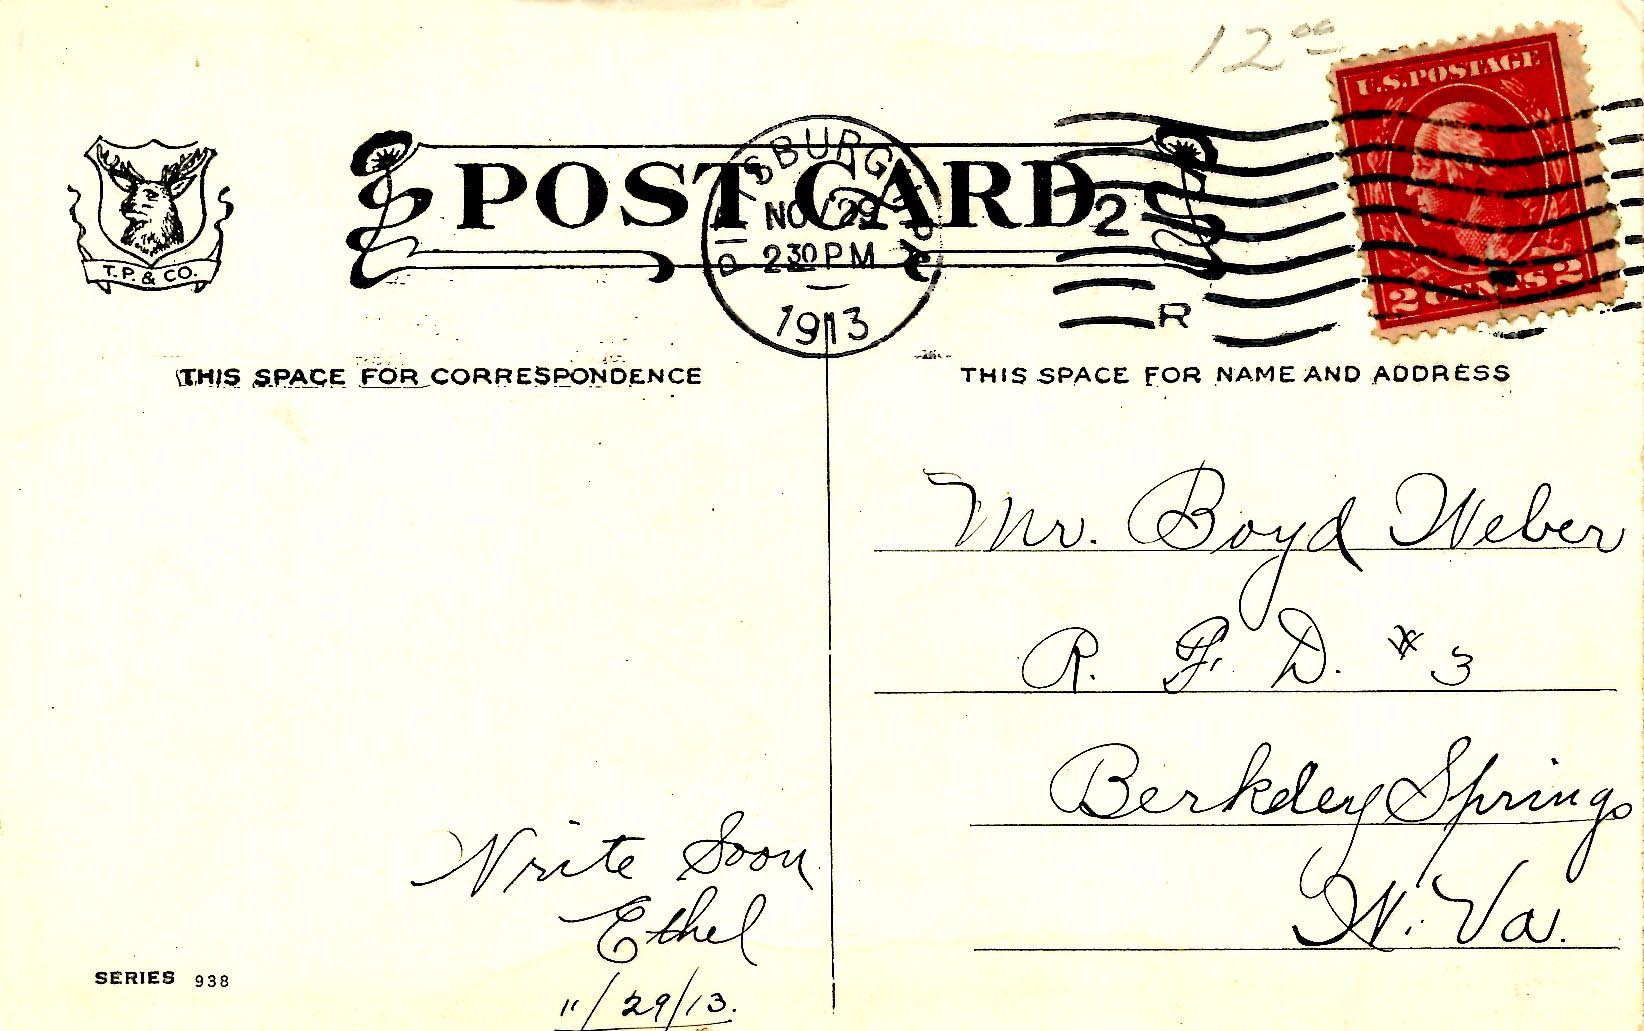 12 00
U.S. POSTAGE
2 CENTS 2
T. P. & CO.
POST CARD
NOV 29
2 30 PM
1913
2
R
THIS SPACE FOR CORRESPONDENCE
THIS SPACE FOR NAME AND ADDRESS
Mr. Boyd Weber
R. F. D. # 3
Berkeley Springs
W. Va.
Write Soon
Ethel
11/29/13.
SERIES 938